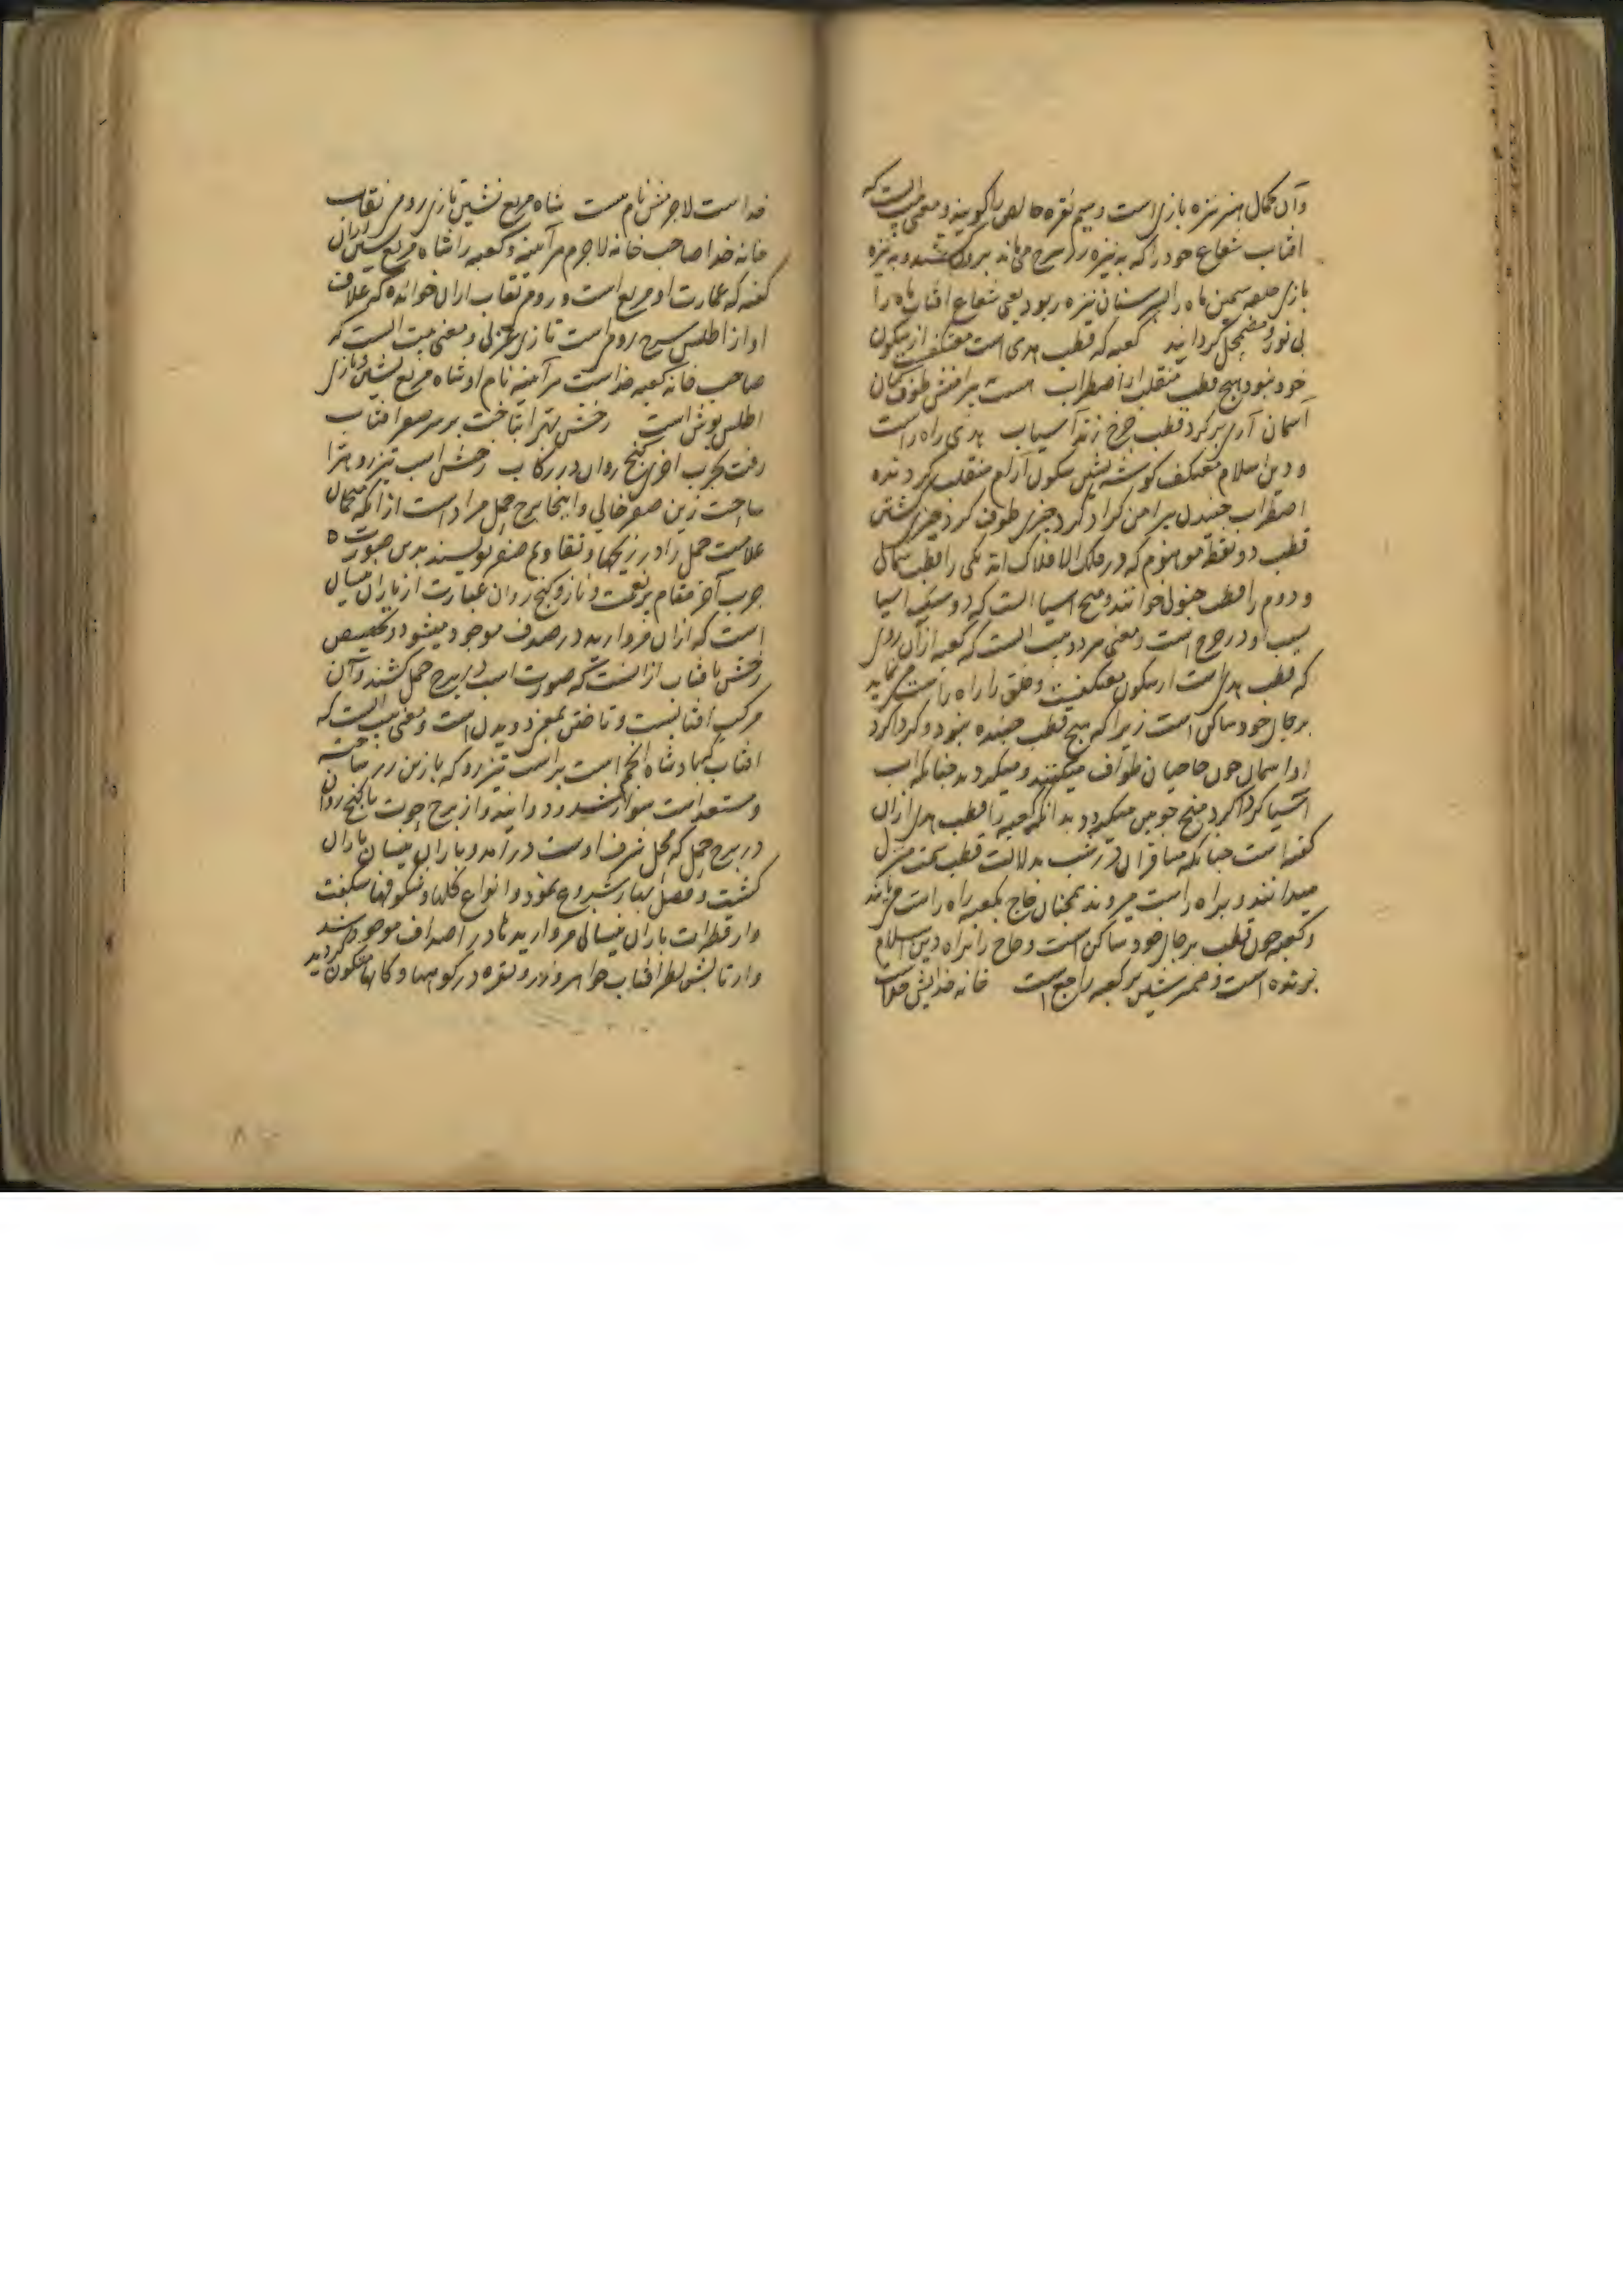 وآن کمال هنر نیزه بازی است و سیم نقره خالص را گویند و معنی بیت انست که
افتاب شعاع خود را که به نیزه زر سرخ می ماند بیرون کشید و به نیزه
بازی حلقه سیمین ماه را بر سنان نیزه ربود یعنی شعاع افتاب ماه را
بی نور و مضمحل گردانید کعبه که قطب هدی است معتکف از سکون
خود نبود هیچ قطب منقلب از اضطراب هست به پیرامنش طوف کنان
آسمان آری بر گرد قطب چرخ زند آسیاب هدی راه راست
و دین اسلام معتکف گوشه نشین سکون آرام منقلب گردنده
اضطراب جنبیدن پیرامن گرداگرد چیزی طوف گرد چیزی گشتن
قطب دو نقطه موهوم که در فلک الافلاک اند یکی را قطب شمالی
و دوم را قطب جنوبی خوانند و میخ اسیا انست که دو سنگ اسیا
بسبب او در چرخ است و معنی هر دو بیت انست که کعبه ازآن روی
که قطب هدی است از سکون معتکفست و خلق را راه راست می نماید
بر جای خود ساکن است زیرا که هیچ قطب جنبنده نبود و گرداگرد
او اسمان چون حاجیان طواف میکنند و میگردند چنانکه اب
آسیا گرداگرد میخ چوبین میگردد بدانکه کعبه را قطب هدی ازان
گفته است چنانکه مسافران در شب بدلالت قطب سمت منزل
میدانند و براه راست میروند همچنان حاج بکعبه راه راست می یابند
و کعبه چون قطب بر جای خود ساکن است و حاج را براه دین اسلام
برنده است و ضمیر شین بر کعبه راجع است خانه خدایش خداست
خداست لاجرمش نام هست شاه مربع نشین تازی رومی نقاب
خانه خدا صاحب خانه لاجرم هرآینه و کعبه را شاه مربع نشین ازان
گفته که عمارت او مربع است و رومی نقاب ازان خوانده که غلاف
او از اطلس سرخ رومی است تازی عربی و معنی بیت انست که
صاحب خانه کعبه خداست هرآینه نام او شاه مربع نشین و تازی
اطلس پوش است رخش بهرا بتاخت بر سر صفر افتاب
رفت بچرب اخری گنج روان در رکاب رخش اسب تیزرو هرا
ساخت زین صفر خالی و اینجا برج حمل مراد است ازانکه منجمان
علامت حمل را در زیجها و تقاویم صفر نویسند بدین صورت ه
چرب آخر مقام پر نعمت و ناز و گنج روان عبارت از باران نیسان
است که ازان مروارید در صدف موجود میشود و تخصیص
رخش بافتاب ازانست که صورت اسب در برج حمل کشند وآن
مرکب افتابست و تاختن بمعنی دویدن است و معنی بیت انست که
افتاب که پادشاه انجم است بر اسب تیزرو که بازین زر ساخته
و مستعد است سوار شد و دوانید و از برج حوت با گنج روان
در برج حمل که محل شرف اوست درآمد و باران نیسان باران
گشت و فصل بهار شروع نمود و انواع گلها و شکوفها شگفت
واز قطرات باران نیسانی مروارید نادر اصداف موجود شد
واز تابش نظر افتاب جواهر و زر و نقره در کوهها و کانها متکون گردید